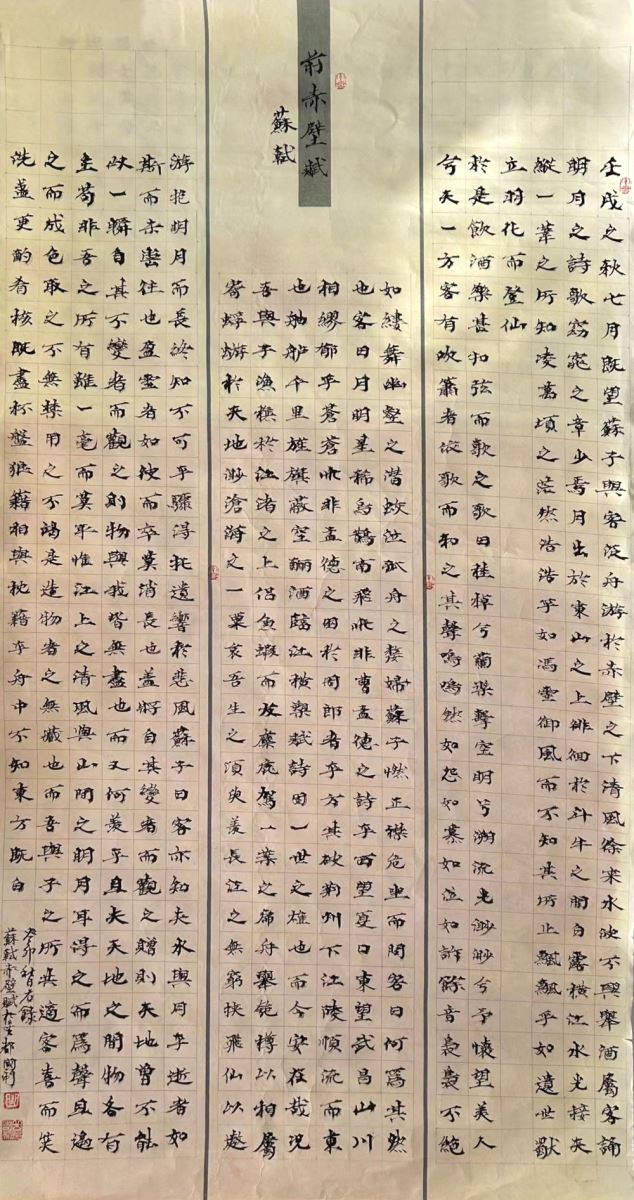 前赤壁賦
蘇軾
壬戌之秋七月既望蘇子與客泛舟游於赤壁之下清風徐來水波不興舉酒屬客誦
明月之詩歌窈窕之章少焉月出於東山之上徘徊於斗牛之間白露橫江水光接天
縱一葦之所如凌萬頃之茫然浩浩乎如馮虛御風而不知其所止飄飄乎如遺世獨
立羽化而登仙
於是飲酒樂甚扣弦而歌之歌曰桂棹兮蘭槳擊空明兮溯流光渺渺兮予懷望美人
兮天一方客有吹簫者從歌而和之其聲嗚嗚然如怨如慕如泣如訴餘音裊裊不絕
如縷舞幽壑之潛蛟泣孤舟之嫠婦蘇子愀正襟危坐而問客曰何爲其然
也客曰月明星稀烏鵲南飛此非曹孟德之詩乎西望夏口東望武昌山川
相繆郁乎蒼蒼此非孟德之困於周郎者乎方其破荊州下江陵順流而東
也舳艫千里旌旗蔽空釃酒臨江橫槊賦詩固一世之雄也而今安在哉況
吾與子漁樵於江渚之上侶魚蝦而友麋鹿駕一葉之扁舟舉匏樽以相屬
寄蜉蝣於天地渺滄海之一粟哀吾生之須臾羨長江之無窮挾飛仙以遨
游抱明月而長終知不可乎驟得托遺響於悲風蘇子曰客亦知夫水與月乎逝者如
斯而未嘗往也盈虛者如彼而卒莫消長也蓋將自其變者而觀之則天地曾不能
以一瞬自其不變者而觀之則物與我皆無盡也而又何羨乎且夫天地之間物各有
主苟非吾之所有雖一毫而莫取惟江上之清風與山間之明月耳得之而爲聲目遇
之而成色取之不無禁用之不竭是造物者之無藏也而吾與子之所共適客喜而笑
洗盞更酌肴核既盡杯盤狼藉相與枕藉乎舟中不知東方既白
癸卯秋月右錄
蘇軾赤壁賦於都國利